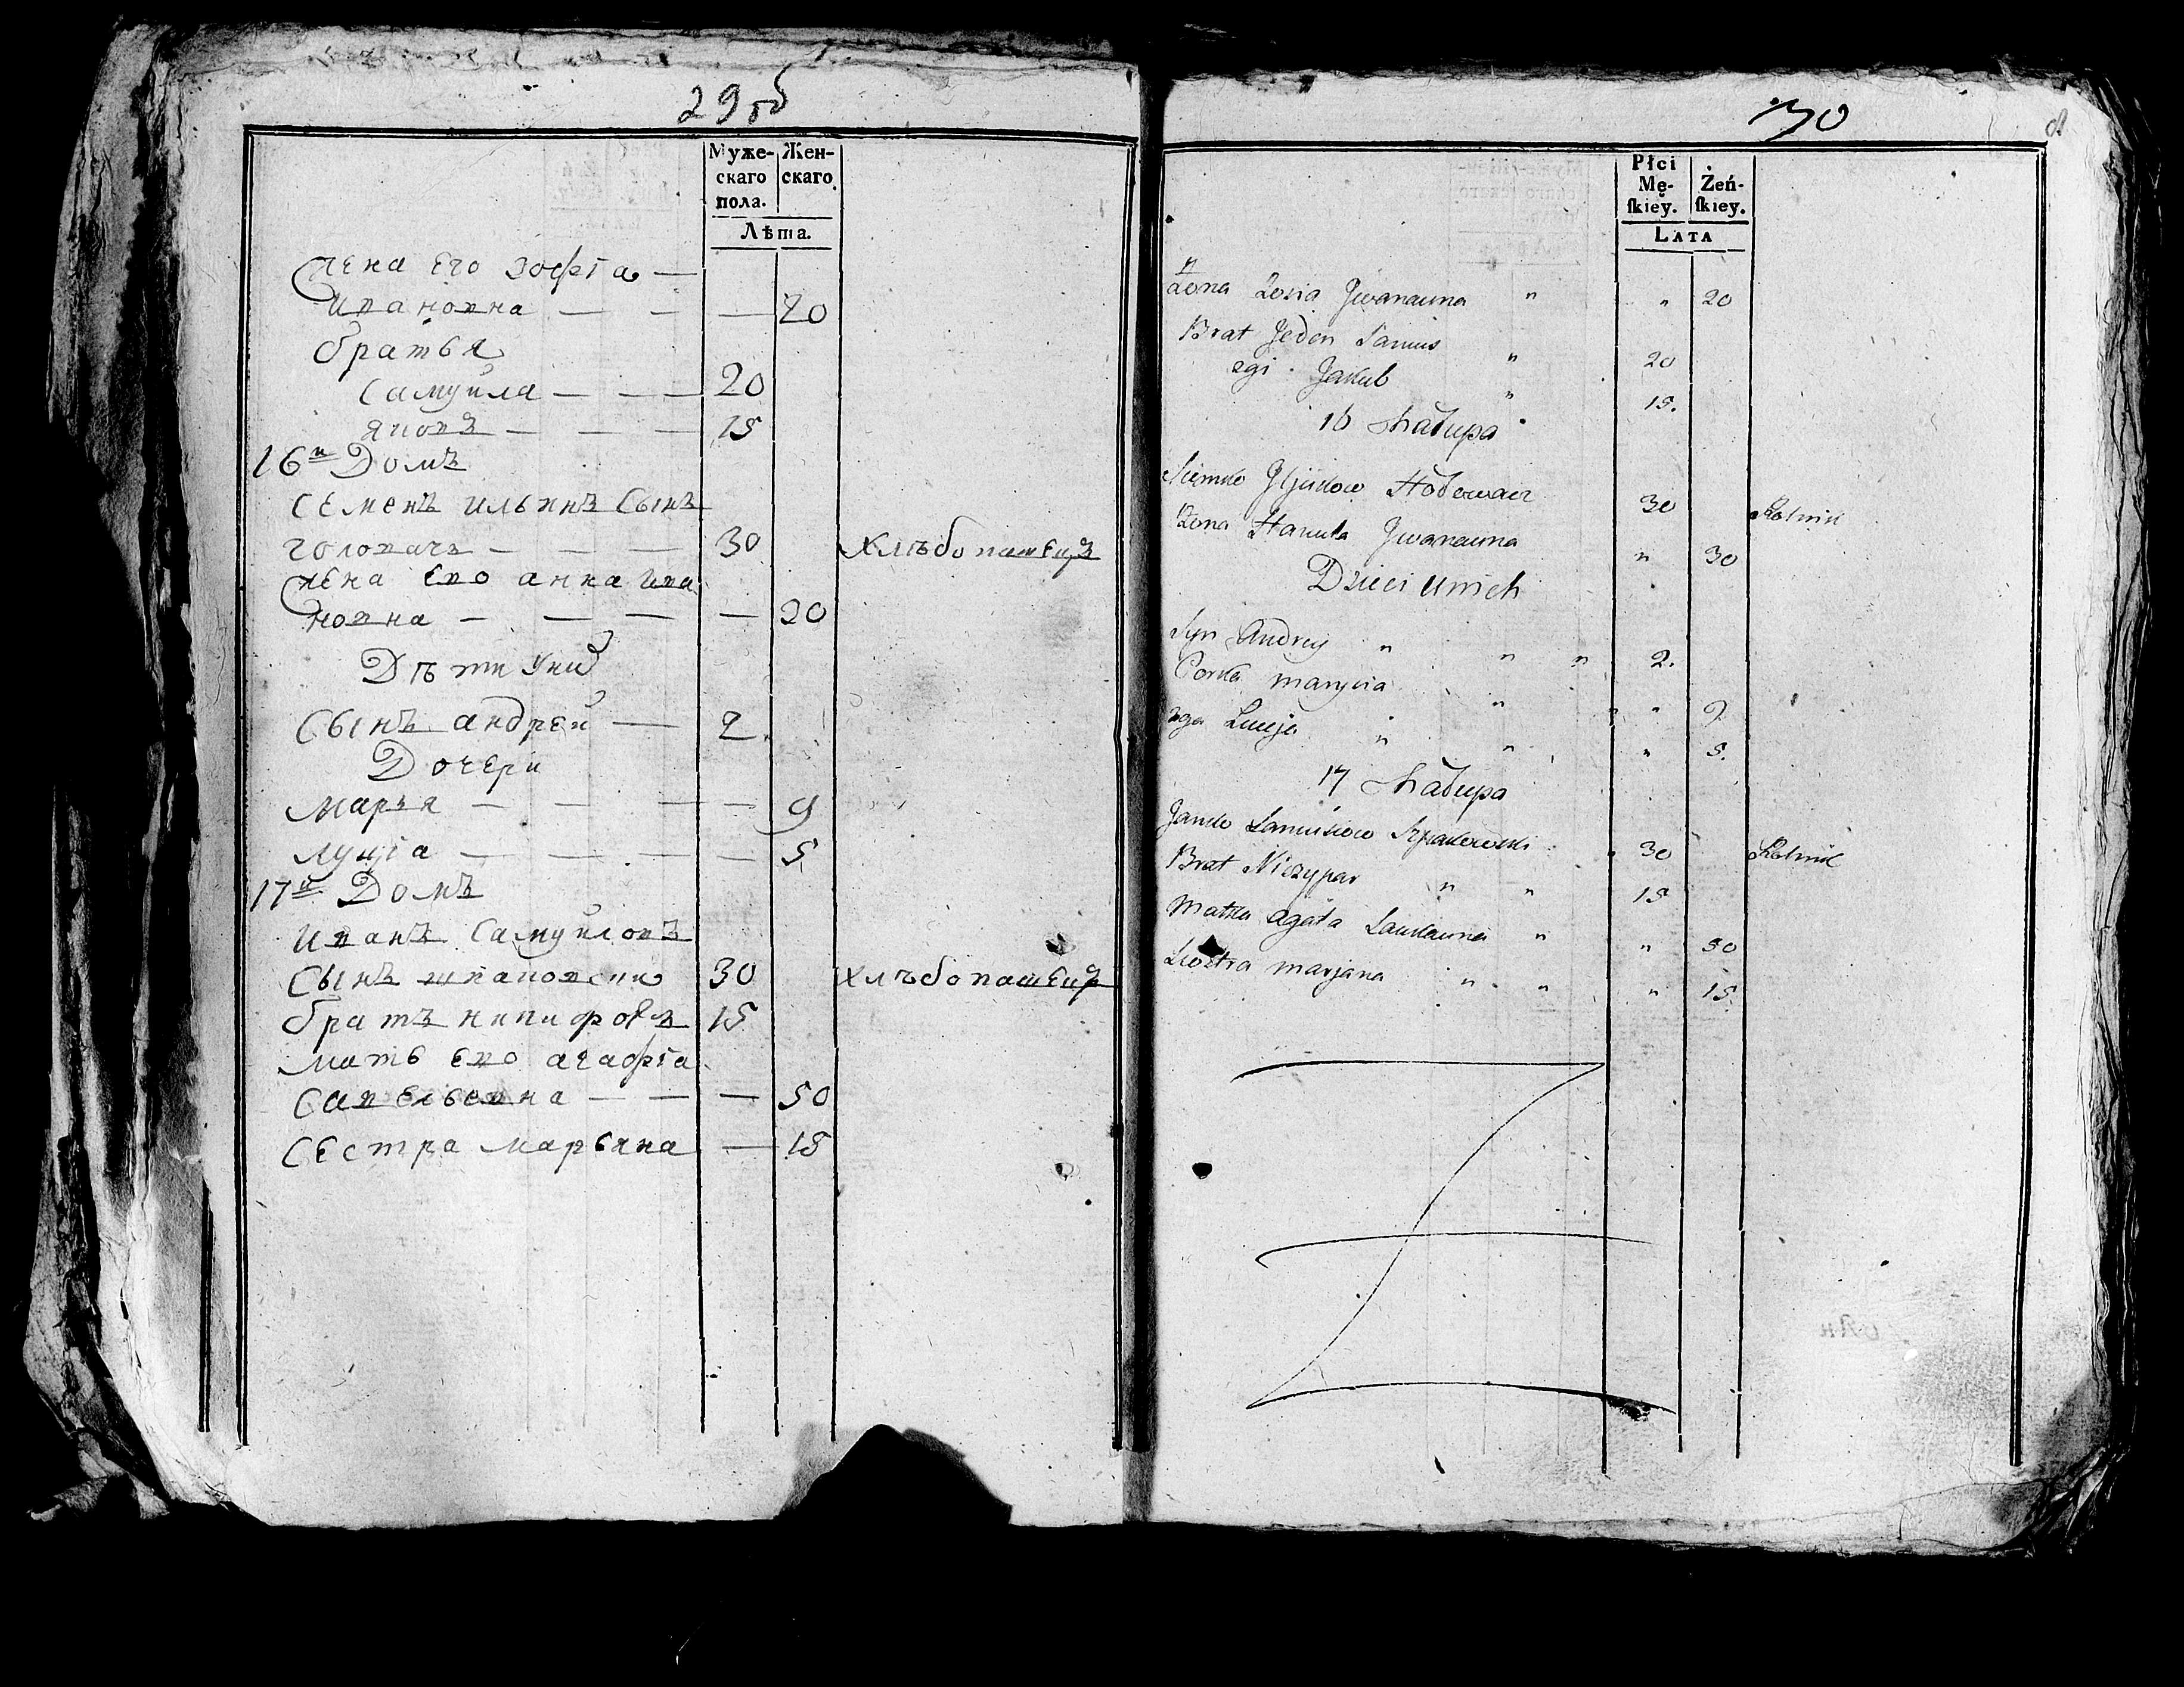 29об
Муже-скаго пола. Жен-скаго
Лѣта.
Жена Его Зофіа —
Ивановна — — — 20
братья
Самуила — — — 20
Яковъ — — — 15
16й Домъ
Семенъ Ильинъ Сынъ
головачъ — — — 30 Хлѣбопашецъ
Жена Ево анна Ива
новна — — — — 20
Дѣти У них
Сынъ андрей — 2
Дочери
Марья — — — — 9
луціа — — — — 5
17й Домъ
Иванъ Самуйловъ
Сынъ шпаковски 30 Хлѣбопашецъ
братъ никифоръ 15
мать Ево агафіа
Савельевна — — — 50
Сестра марьяна — 15
30
Płci Mę-ſkiey. Żeń-ſkiey.
LATA
Żona Zosia Jwanauna " " 20
Brat Jeden Samus " 20
2gi Jakub " 15.
16 Chałupa
Siemko Jljuków Hołowacz 30 Rolnik
Żona Hanula Jwanauna " 30
Dzieci Unich
Syn Andrey " " " 2.
Corka maryśia " " " 9
2ga Lucyja " " " 5.
17 Chałupa
Janko Samusiow Szpakowski 30 Rolnik
Brat Niczypar " " 15
Matka agata Saukauna " " 50
Siostra marjana " " " 15